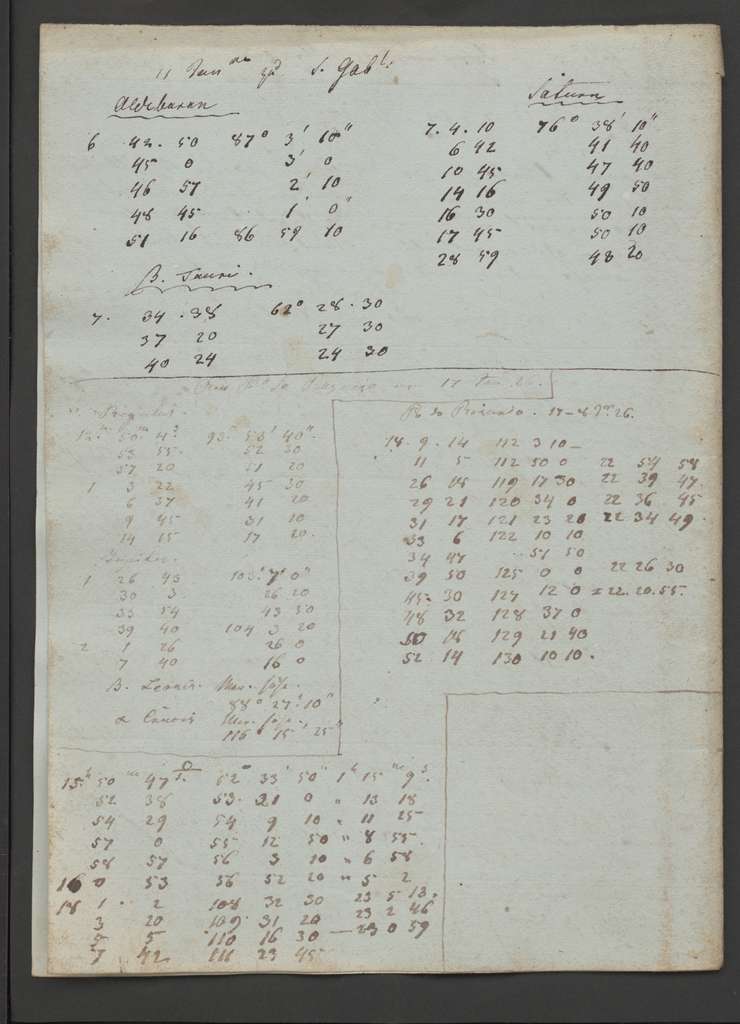 11 Jan S. Gab
Aldebaran
6 42. 50 87° 3' 10"
45 0 3' 0
46 57 2' 10
48 45 1' 0"
51 16 86 59 10
Saturn
7. 4. 10 76° 38' 10"
6 42 41 40
10 45 47 40
14 16 49 50
16 30 50 10
17 45 50 10
28 59 48 20
B. Tauri.
7. 34. 38 62° 28. 30
37 20 27 30
40 24 24 30
17
Regulus.
12 50 4 93 53' 40"
53 55 52 30
57 20 51 20
1 3 22 45 30
6 37 41 20
9 45 31 10
14 15 17 20.
Jupiter.
1 26 43 103° 7' 0"
30 3 26 20
33 54 43 50
39 40 104 3 20
2 1 26 26 0
7 40 16 0
B. Leonis. Mer.
88° 27' 10"
α Crucis Mer.
116° 15' 25"
26.
14. 9. 14 112 3 10
11 5 112 50 0 22 54 58
26 18 119 17 30 22 39 47.
29 21 120 34 0 22 36 45
31 17 121 23 20 22 34 49.
33 6 122 10 10
34 47 51 50
39 50 125 0 0 22 26 30
45 30 127 12 0 = 22. 20. 55.
48 32 128 37 0
50 18 129 21 40
52 14 130 10 10.
15h 50m 47 52° 33' 50" 1h 15m 9s.
52 38 53. 21 0 " 13 18
54 29 54 9 10 " 11 25
57 0 55 12 50 " 8 55.
58 57 56 3 10 " 6 58
16 0 53 56 52 20 " 5 2
18 1. 2 108 32 30 23 5 13.
3 20 109. 31 20 23 2 46
5 5 110 16 30 — 23 0 59
7 42 111 23 45